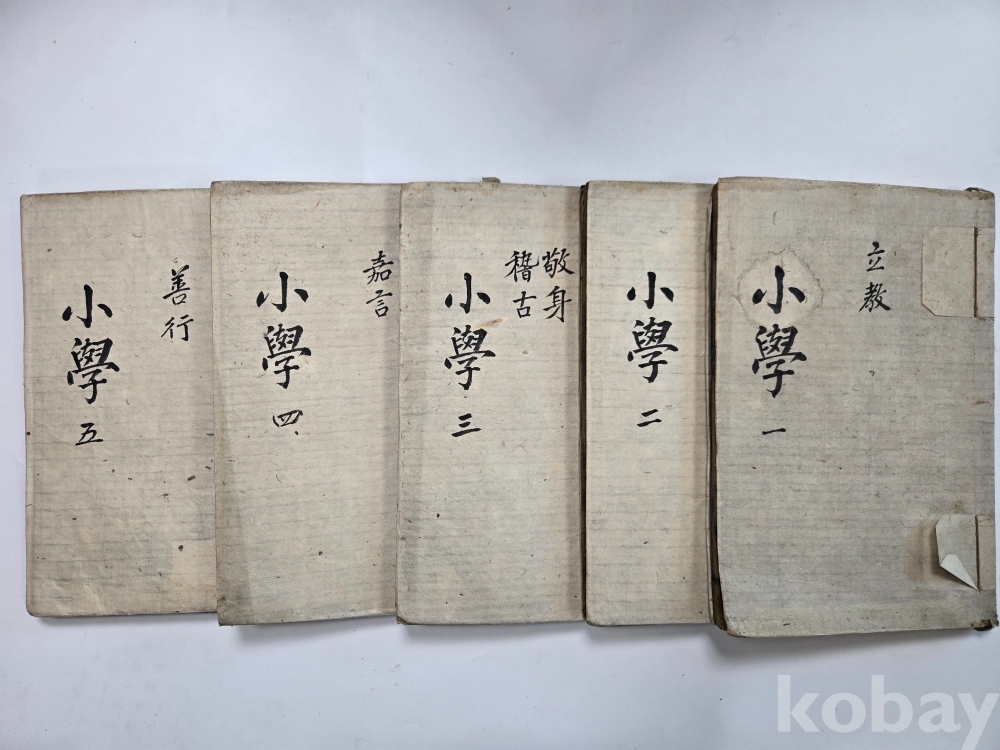 立教
小學 一
小學 二
敬身
稽古
小學 三
嘉言
小學 四
善行
小學 五
kobay